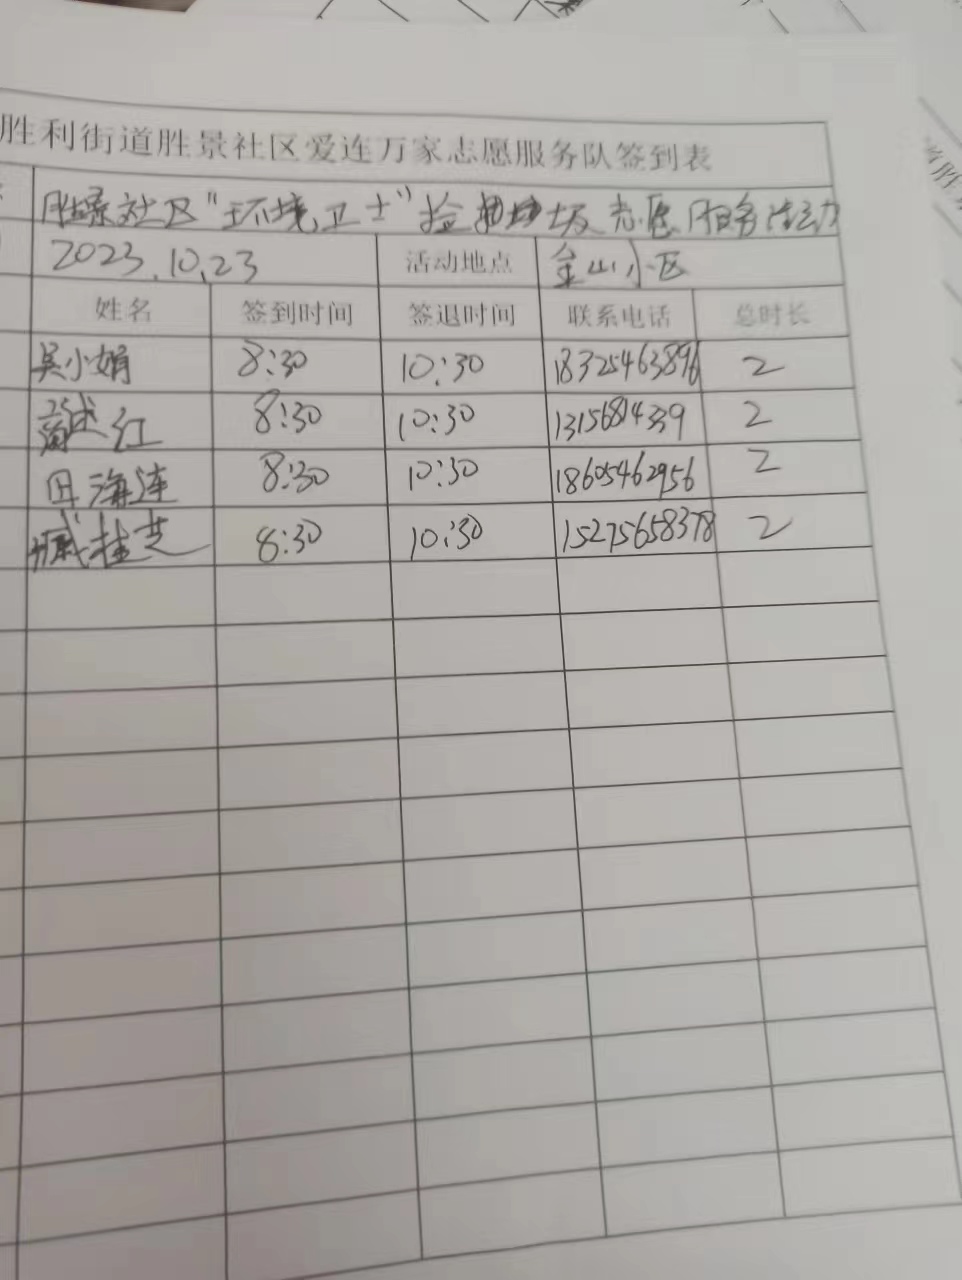 胜利街道胜景社区爱连万家志愿服务队签到表
胜景社区“环境卫士”捡垃圾志愿服务活动
2023.10.23 活动地点 金山小区
姓名 签到时间 签退时间 联系电话 总时长
吴小娟 8:30 10:30 18325463896 2
红 8:30 10:30 13156814339 2
田海莲 8:30 10:30 18605462956 2
臧桂芝 8:30 10:30 15275658378 2